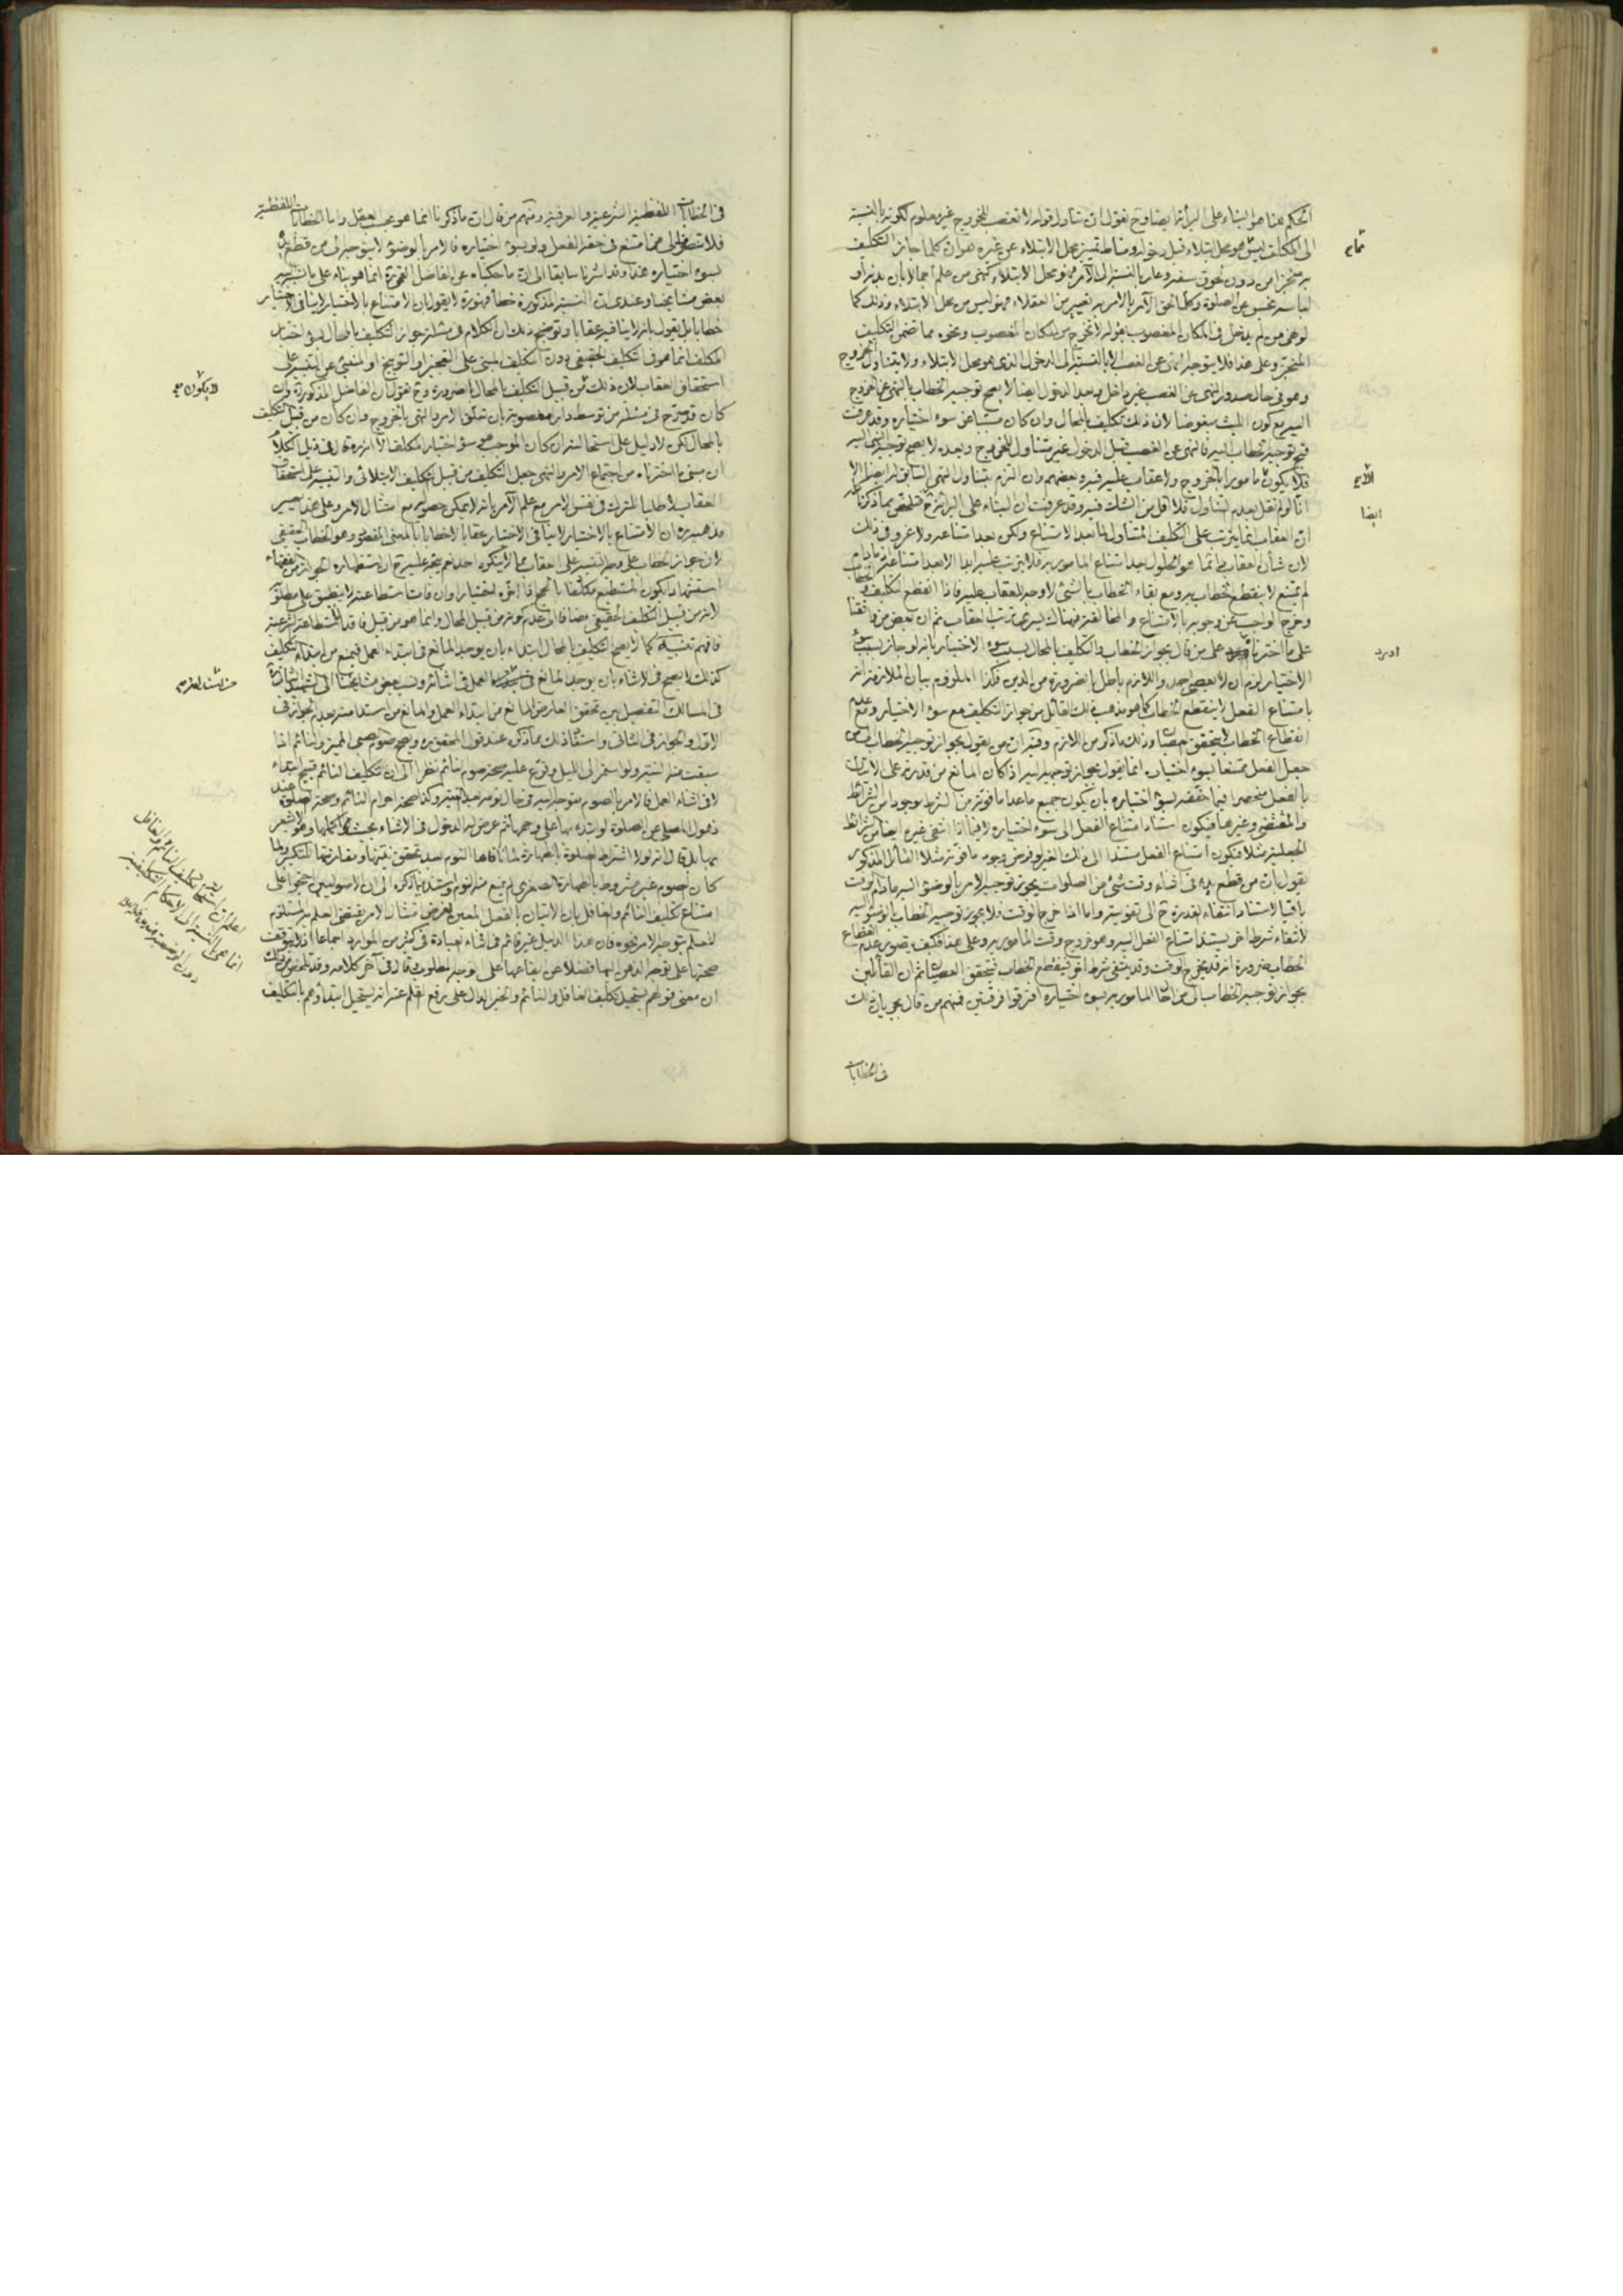 الحكم هنا هو البناء على البرائة ايضا وح نقول ان تناول قوله لا تغصب للخروج غير معلوم لكونه بالنسبة
الى المكلف ليس هو محل ابتلاء قبل دخوله ومناط تمييز محل الابتلاء عن غيره هو ان كلما جاز التكليف
به منجزا من دون لحوق سفه وعار بالنسبة الى الآمر فهو محل الابتلاء كنهى من علم اجمالا بان بدنه او
لباسه نجس عن الصلوة وكلما لحق الآمر بالامر به تعيير من العقلاء فهو ليس من محل الابتلاء وذلك كما
لو نهى من لم يدخل فى المكان المغصوب بقوله لا تخرج من المكان المغصوب ونحوه مما تضمن التكليف
المنجز وعلى هذا فلا يتوجه النهى عن الغصب الا بالنسبة الى الدخول الذى هو محل الابتلاء ولا يتناول الخروج
وهو فى حال صدور النهى عن الغصب غير داخل وبعد الدخول ايضا لا يصح توجيه الخطاب بالنهى عن الخروج
اليه مع كون اللبث مبغوضا لان ذلك تكليف بالمحال وان كان مسببا عن سوء اختياره وقد عرفت
قبح توجيه الخطاب اليه فالنهى عن الغصب قبل الدخول غير متناول للخروج وبعده لا يصح توجيه النهى اليه
فلا يكون مامورا بالخروج ولا عقاب عليه فيه وبعضهم وان التزم بتناول النهى السابق له ايضا الا
انا لو لم نقل بعدم التناول فلا اقل من الشك فيه وقد عرفت ان البناء على البرائة ح فتلخص مما ذكرنا
ان العقاب انما يترتب على التكليف المتناول لما بعد الامتناع ولكن بعد امتناعه ولا غرو فى ذلك
لان شأن العقاب انما هو الحلول بعد امتناع المامور به فلا يترتب عليه ابدا الا بعد امتناعه اذ ما دام
لم يمتنع لا ينقطع الخطاب به ومع بقاء الخطاب بالشئ لا وجه للعقاب عليه فاذا انقطع التكليف
وخرج الواجب عن وجوبه بالامتناع والمخالفة فهناك يسرى ترتب العقاب ثم ان بعض من وافقنا
على ما اخترناه على من قال بجواز الخطاب والتكليف بالمحال بسبب سوء الاختيار بانه لو جاز بسبب سوء
الاختيار لزم ان لا يعصى احد واللازم باطل بالضرورة من الدين فكذا الملزوم بيان الملازمة انه
بامتناع الفعل لا ينقطع الخطاب كما هو مذهب ذلك القائل من جواز التكليف مع سوء الاختيار ومع عدم
انقطاع الخطاب لا يتحقق عصيان وذلك ما ذكر من اللازم وفيه ان من يقول بجواز توجيه الخطاب الى من
جعل الفعل ممتنعا بسوء اختياره انما يقول بجواز توجيهه اليه اذ كان المانع من قدرته على الاتيان
بالفعل منحصرا فيما حققه بسوء اختياره بان يكون جميع ما عدا ما فوته من الشرط موجودا من الشرائط
والمقتضى وغيرهما فيكون استناد امتناع الفعل الى سوء اختياره لا فيما اذا انتفى غيره ايضا من الشرائط
الجعلية مثلا فيكون امتناع الفعل مستندا الى ذلك الغير لو فرض وجود ما فوته مثلا القائل المذكور
يقول بان من قطع يده فى اثناء وقت شئ من الصلوات يجوز توجيه الامر بالوضوء اليه مادام الوقت
باقيا لاستناد انتفاء القدرة ح الى تفويته واما اذا خرج الوقت فلا يجوز توجيه الخطاب بالوضوء اليه
لانتفاء شرط آخر يستند امتناع الفعل اليه وهو خروج وقت المامور به وعلى هذا فكيف تصور عدم انقطاع
الخطاب ضرورة انه قد يخرج الوقت وقد ينتفى شرط آخر فينقطع الخطاب فيتحقق العصيان ثم ان القائلين
بجواز توجيه الخطاب الى من اخل المامور به بسوء اختياره افترقوا فرقتين فمنهم من قال بجريان ذلك
فى الخطابات
ايضا
اورد
فى الخطابات اللفظية الشرعية والعرفية ومنهم من قال ان ما ذكرنا انما هو بحسب العقل واما الخطابات اللفظية
فلا تنصرف الى من امتنع فى حقه الفعل ولو بسوء اختياره فالامر بالوضوء لا يتوجه الى من قطع يده
بسوء اختياره هذا وقد اشرنا سابقا الى ان ما حكيناه عن الفاضل القمى ره انما هو بناء على ما نسبه اليه
بعض مشايخنا وعندى ان النسبة المذكورة خطأ فهو ره لا يقول ان الامتناع بالاختيار لا ينافى الاختيار
خطابا بل يقول بانه لا ينافيه عقابا وتوضيح ذلك ان الكلام فى مسئلة جواز التكليف بالمحال بسوء اختيار
المكلف انما هو فى التكليف الحقيقى دون التكليف المبنى على التعجيز او التوبيخ او المنبئ عن التنبيه على
استحقاق العقاب لان ذلك ليس من قبيل التكليف بالمحال بالضرورة وح نقول ان الفاضل المذكور ره وان
كان قد صرح فى مسئلة من توسط دارا مغصوبة بان تعلق الامر والنهى بالخروج وان كان من قبيل التكليف
بالمحال لكن لا دليل على استحالته ان كان الموجب هو سوء اختيار المكلف الا انه ره قال فى ذيل الكلام
ان مبنى ما اخترناه من اجتماع الامر والنهى جعل التكليف من قبيل التكليف الابتلائى والتنبيه على استحقاق
العقاب لا طلبا للترك فى نفس الامر مع علم الآمر بانه لا يمكن حصوله مع امتثال الامر وعلى هذا يصير
مذهبه ره ان الامتناع بالاختيار لا ينافى الاختيار عقابا لا خطابا بالمعنى المقصود وهو الخطاب الحقيقى
لان جواز الخطاب على وجه التنبيه على العقاب مما لا ينكره احد نعم يتجه عليه ره ح ان استظهاره الجواز من الفقهاء
استشهادا بكون المستطيع مكلفا بالحج اذا اخره اختيارا وان فات استطاعته لا ينطبق على مطلوبه
لانه من قبيل التكليف الحقيقى مضافا الى عدم كونه من قبيل المحال وانما هو من قبيل فاقد الاستطاعة الشرعية
فافهم تنبيه كما لا يصح التكليف بالمحال ابتداء بان يوجد المانع فى ابتداء العمل فيمنع من ابتداء التكليف
كذلك لا يصح فى الاثناء بان يوجد المانع فى العمل فى اثنائه ونسب بعض مشايخنا الى الشهيد الثانى ره
فى المسالك التفصيل بين تحقق العارض المانع من ابتداء العمل والمانع من استدامته بعدم الجواز فى
الاول والجواز فى الثانى واستفاد ذلك مما ذكره عند قول المحقق ره ويصح صوم الصبى المميز والنائم اذا
سبقت منه النية ولو استمر الى الليل وفرع عليه صحة صوم النائم نظرا الى ان تكليف النائم قبيح ابتداء
لا فى اثناء العمل فالامر بالصوم متوجه اليه فى حال نومه بعد النية وكذا صحة احرام النائم وصحة الصلوة عند
ذهول المصلى عن الصلوة لو ابتدء بها على وجهها ثم عرض له الذهول فى الاثناء بحيث اكملها وهو لا يشعر
بها بل قال انه لولا اشتراط الصلوة بالطهارة لما نافاها النوم بعد تحقق نيتها ومقارنتها للتكبير ولما
كان الصوم غير مشروط بالطهارة الصغرى لم يمنع منه النوم واستند فيما ذكره الى ان الاصوليين احتجوا على
امتناع تكليف النائم والغافل بان الاتيان بالفعل المعين لغرض امتثال الامر يقتضى العلم به المستلزم
للعلم بتوجه الامر نحوه فان هذا الدليل غير قائم فى اثناء العبادة فى كثير من الموارد اجماعا اذ لا يتوقف
صحتها على توجه الذهن اليها فضلا عن ايقاعها على الوجه المطلوب وقال فى آخر كلامه وقد تلخص من ذلك
ان معنى قولهم يستحيل تكليف الغافل والنائم والخبر الدال على رفع القلم عنه انه يستحيل ابتداؤهم بالتكليف
لا يكون